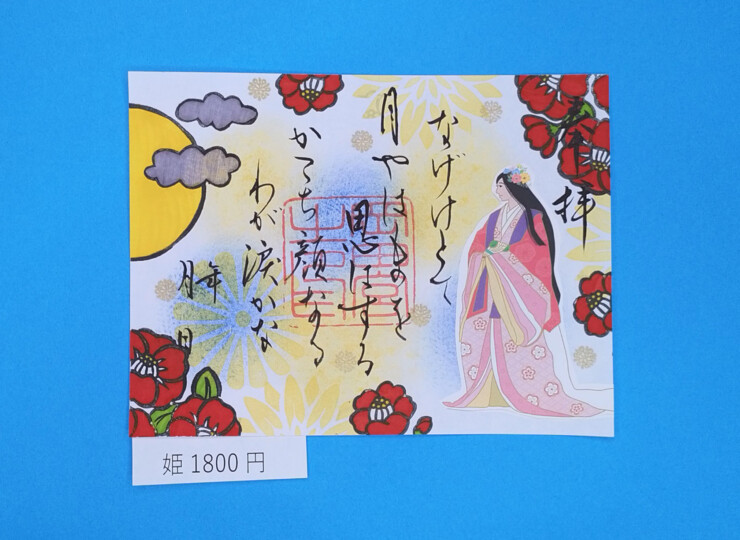 奉拝
なげけとて
月やはものを
思はする
かこち顔なる
わが涙かな
年
月 日
姫 1800 円